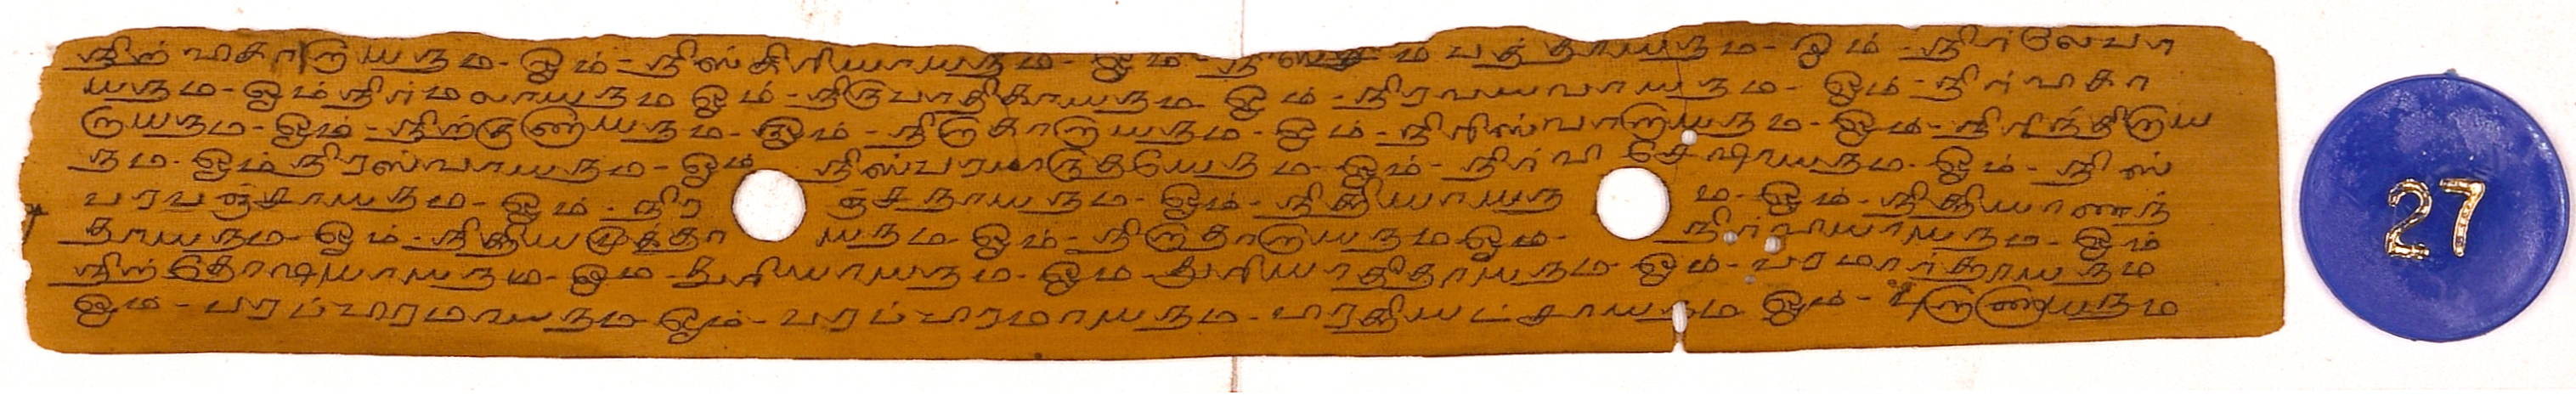 நிற்விகாறாயநம - ஓம் - நிஸ்கிரியாயநம - ஓம் - நிஸ் ம பத்தாயநம - ஓம் - நிர்லேபா
யநம - ஓம் நிர்மலாயநம ஓம் - நிருபாதிகாயநம ஓம் - நிரவயவாயநம - ஓம் - நிர்விகா
றாயநம - ஓம் - நிற்குணாயநம - ஓம் - நிறாகாறாயநம - ஓம் - ஓம் - நிரிந்திறாய
நம - ஓம் நிரஸ்வாயநம - ஓம் - ஓம் - நிர்விசேஷாயநம - ஓம் - நிஸ்
பரபஞ்சாயநம - ஓம் - நிர ஞ்சநாயநம - ஓம் - நித்தியாயந ம - ஓம் - நித்தியாணந்
தாயநம - ஓம் - நித்தியமுத்தா யநம ஓம் - நிறாதாறாயநம ஓம் - ஓம்
நிற்தோஷாயாயநம - ஓம் - துரியாயநம - ஓம் - துரியாதீதாயநம - ஓம் - பரமார்தாயநம
ஓம் - பரப்பிரமாயநம ஓம் - பரப்பிரமாயநம - பிரத்தியட்சாயநம ஓம் - பூறணாயநம
27